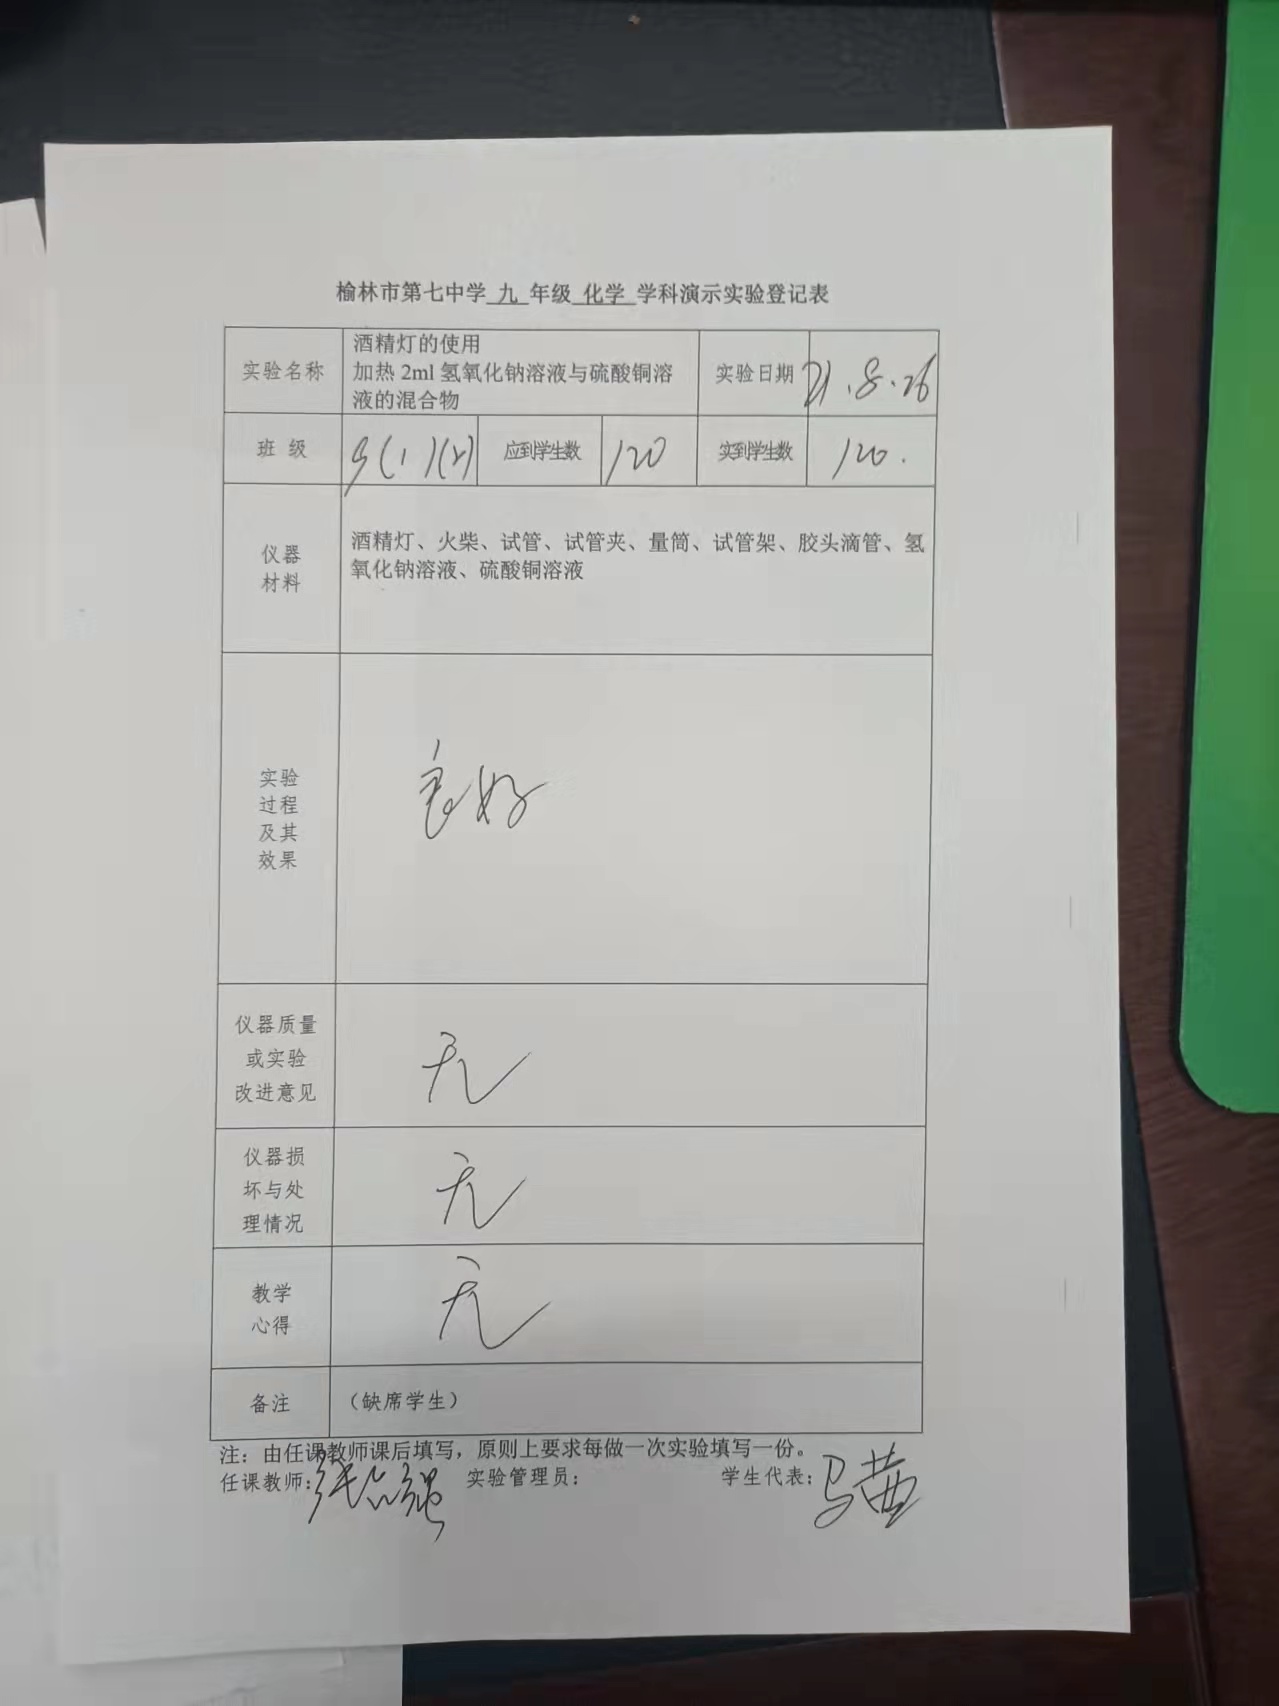 榆林市第七中学 九 年级 化学 学科演示实验登记表
实验名称
酒精灯的使用
加热 2ml 氢氧化钠溶液与硫酸铜溶
液的混合物
实验日期
21.8.26
班 级
9(1)(2)
应到学生数
120
实到学生数
120.
仪器
材料
酒精灯、火柴、试管、试管夹、量筒、试管架、胶头滴管、氢
氧化钠溶液、硫酸铜溶液
实验
过程
及其
效果
良好
仪器质量
或实验
改进意见
无
仪器损
坏与处
理情况
无
教学
心得
无
备注
（缺席学生）
注：由任课教师课后填写，原则上要求每做一次实验填写一份。
任课教师： 实验管理员： 学生代表：马茜